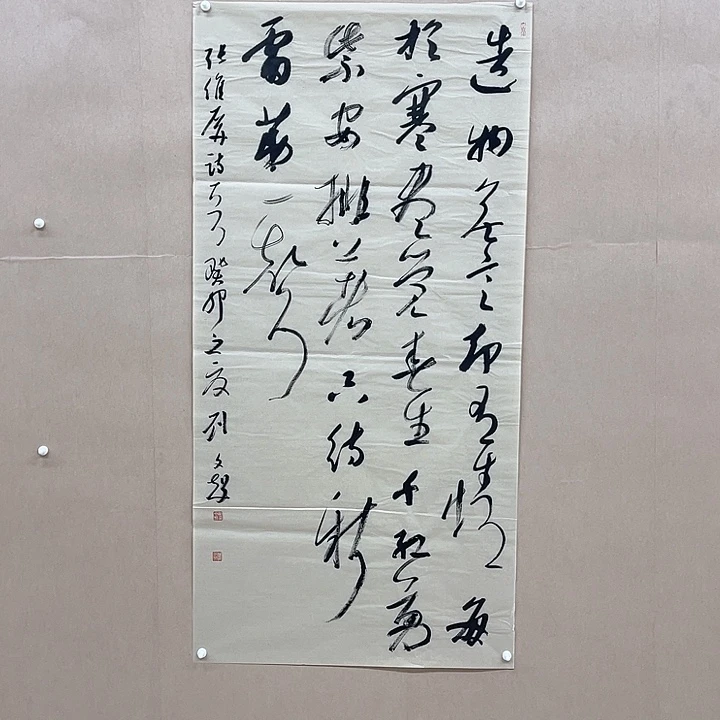 造物無言却有情每
於寒盡覺春生千紅萬
紫安排著只待新
雷第一聲
張維屏詩 癸卯之夏 刘文